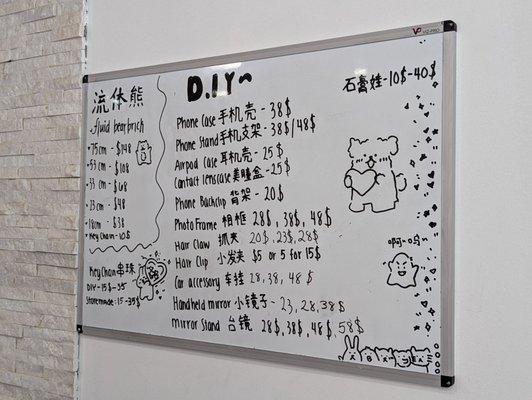 VIZ-PRO
流体熊
fluid bearbrick
•75cm - $148
•53cm - $108
•33cm - $68
•23cm - $48
•18cm - $38
•Key Chain - 10$
Key Chain 串珠
DIY - 15$ - 35
Store made: 15 - 35$
D.I.Y~
Phone Case 手机壳 - 38$
Phone Stand 手机支架 - 38$/48$
Airpod Case 耳机壳 - 25$
Contact lens case 美瞳盒 - 25$
Phone Backclip 背架 - 20$
Photo Frame 相框 28$, 38$, 48$
Hair Claw 抓夹 20$, 23$, 28$
Hair Clip 小发夹 $5 or 5 for 15$
Car accessory 车挂 28, 38, 48 $
Handheld mirror 小镜子 - 23, 28, 38$
Mirror Stand 台镜 28$, 38$, 48$, 58$
石膏娃 - 10$ - 40$